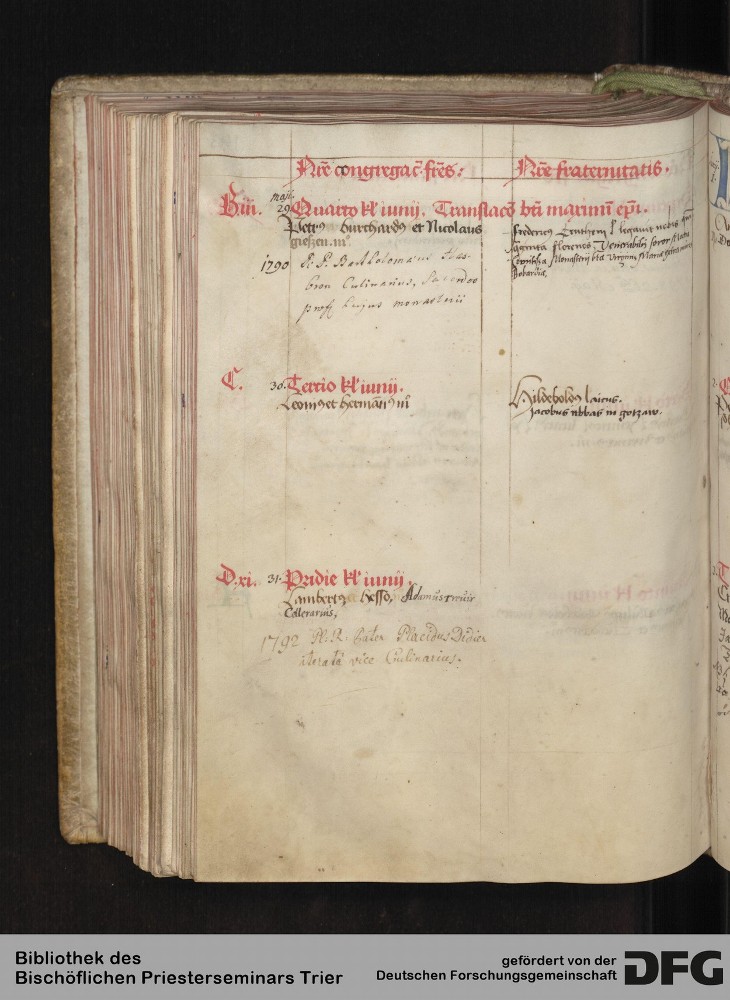 Nre congregac fres:
Nre fraternitatis.
maij
B iii. 29 Quarto kl' iunij. Translacō bti maximi epi.
Petrus burchardus et Nicolaus
gieszen. m°
1790 R. P. Bartholomæus
Culinarius, Sacerdos
prof. hujus monasterii
Fredericus legauit nobis
florenos. Venerabilis soror
Monasterij bte Virginis Marie
C. 30. Tercio kl' iunij.
Leonius et hermanus m°
Hildeboldus laicus.
Jacobus abbas in gotzaw.
D. xi. 31. Pridie kl' iunij.
Lambertus Hesso, Adamus treuir
Cellerarius,
1792 Pl. R. Pater Placidus Didier
iteratâ vice Culinarius.
Bibliothek des
Bischöflichen Priesterseminars Trier
gefördert von der
Deutschen Forschungsgemeinschaft
DFG